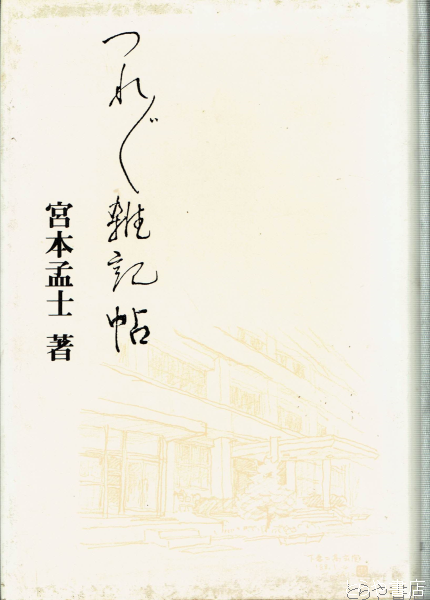 つれ〴〵雑記帖
宮本孟士 著
とらや書店